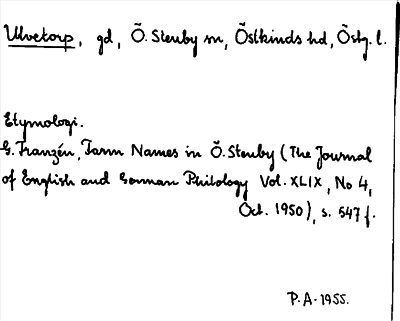 Ulvetorp, gd, Ö. Stenby sn, Östkinds hd, Östg. l.
Etymologi.
G. Franzén, Farm Names in Ö. Stenby (The Journal
of English and German Philology Vol. XLIX, No 4,
Oct. 1950), s. 547 f.
P.A. 1955.